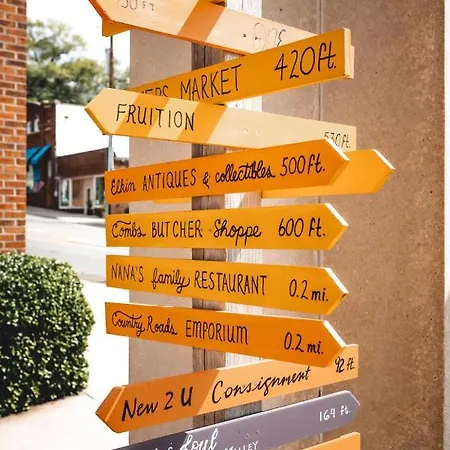 150 FT
MARKET 420 ft.
FRUITION 530 ft.
Elkin ANTIQUES & collectibles 500 ft.
Combs BUTCHER Shoppe 600 ft.
NANA'S family RESTAURANT 0.2 mi.
Country Roads EMPORIUM 0.2 mi.
New 2 U Consignment 92 ft.
164 ft.
Soul